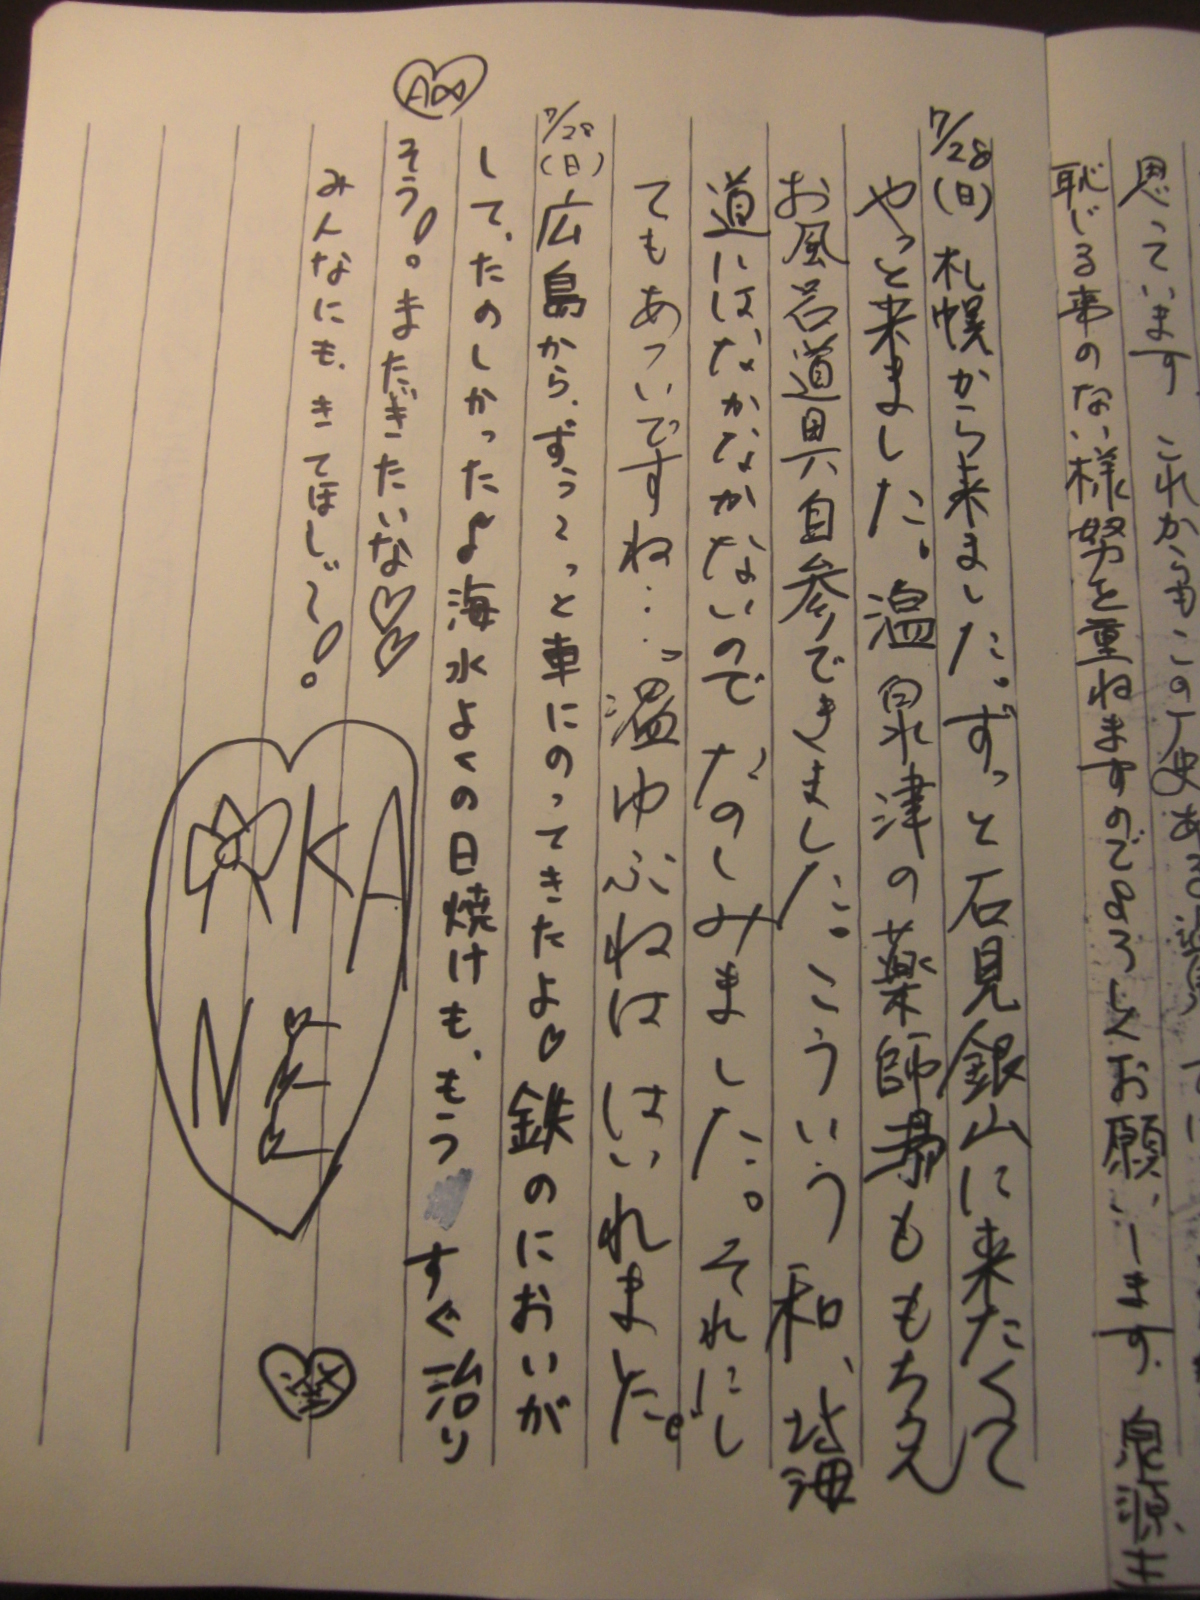 思っています これからもこの
恥じる事のない様努を重ねますのでよろしくお願いします。泉源
7/28(日) 札幌から来ました。ずっと石見銀山に来たくて
やっと来ました。温泉津の薬師湯ももちろん
お風呂道具自参できました。こういう和、北海
道にはなかなかないので たのしみました。それにし
てもあついですね…"温ゆぶねは はいれました。"
7/28(日) 広島から、ずっっっと車にのってきたよ♡ 鉄のにおいが
して、たのしかったよ 海水よくの日焼けも、もう すぐ治り
そう!。まだきたいな♡♡
みんなにも、きてほし〜!。
A∞
AKA
NE